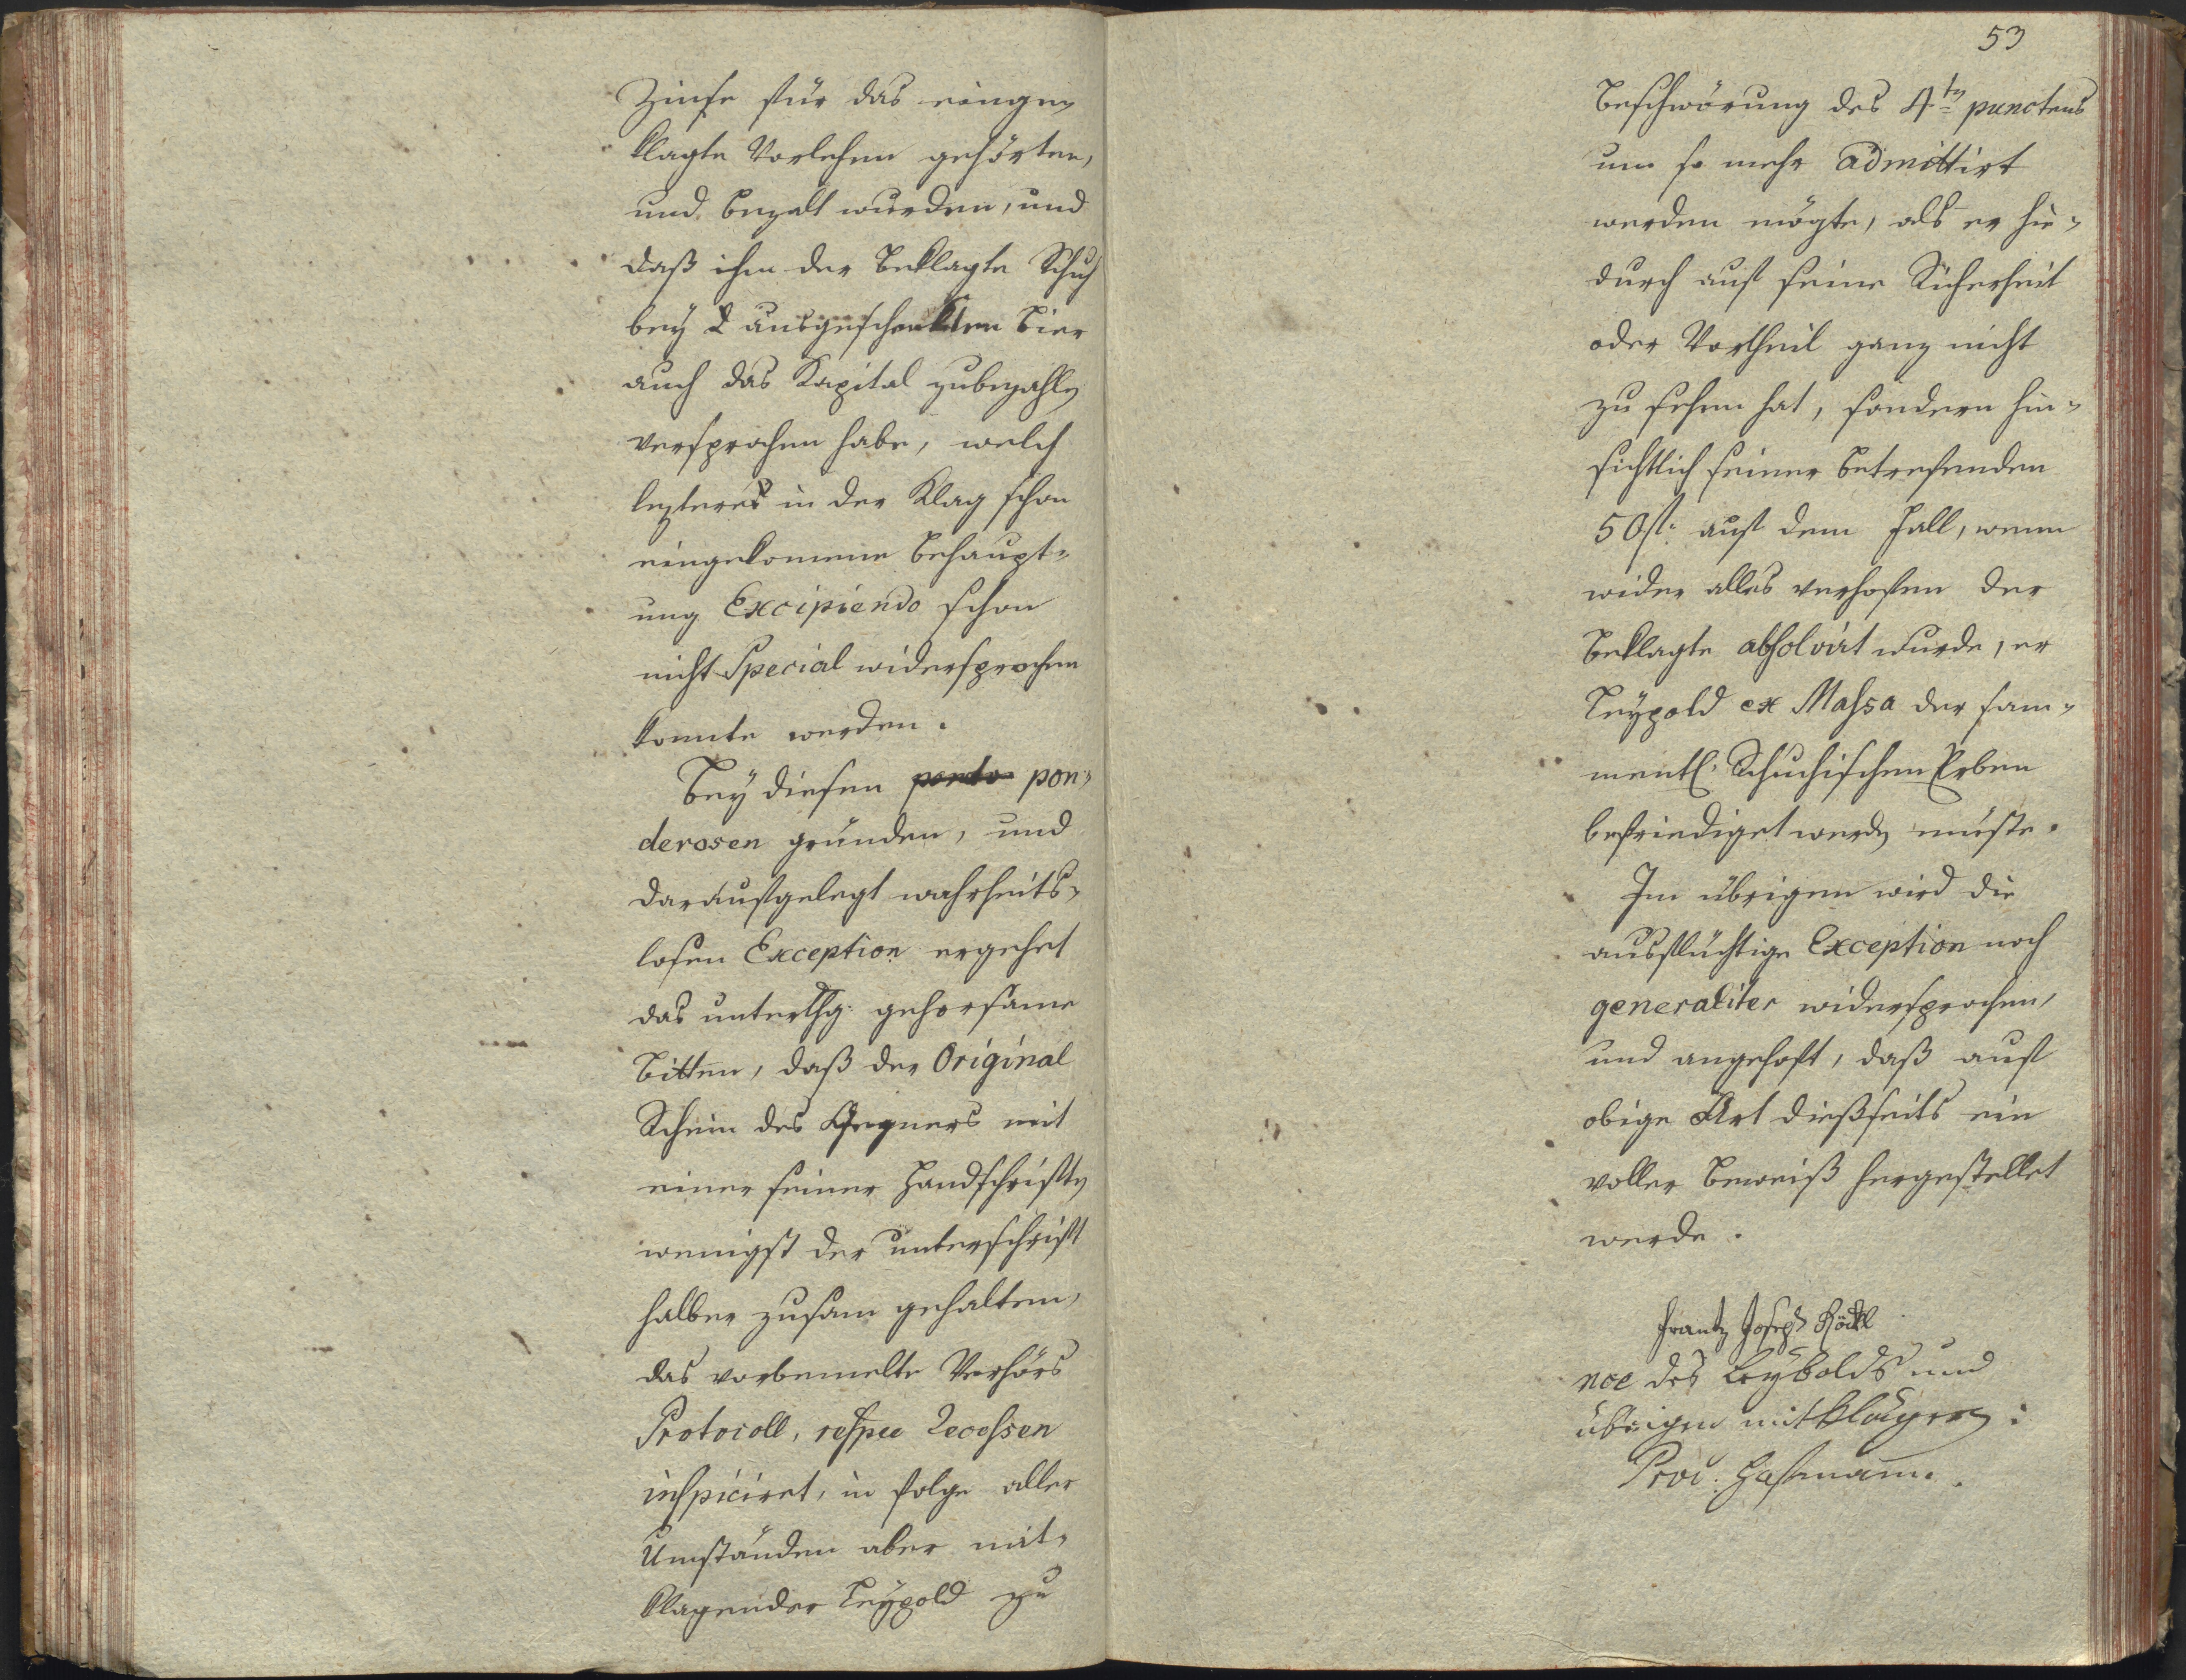 Zinse für das einge-
klagte Vorlehen gehörten,
und bezalt wurden, und
daß ihm der Beklagte Schuh
bey ausgeschenkten Bier
auch das Kapital zubezahlen
versprochen habe, welch
lezteres in der Klag schon
eingekomene Behaupt-
ung Excipiendo schon
nicht Special widersprochen
konnte werden.
Bey diesen pon-
derosen gründen, und
daraufgelegt wahrheits-
losen Exception ergehet
das unterthg: gehorsame
Bitten, daß der Original
Schein des Gegners mit
einer seiner Handschriften
wenigst der unterschrift
halber zusam gehalten,
das vorbemelte Verhörs
Protocoll, respee Recessen
inspiciret, in folge aller
Umständen aber mit-
klagender Leypold zu
53
Beschwörung des 4ten punctens
um so mehr admittirt
werden mögte, als er hie-
durch auf seine Sicherheit
oder Vortheil ganz nicht
zu sehen hat, sondern hin-
sichtlich seiner betrefenden
50 fl: auf dem Fall, wenn
wider alles verhofen der
Beklagte absolvirt wurde, er
Leypold ex Massa der sam-
mentl: Schuchischen Erben
befriediget werden müste.
Im übrigen wird die
ausflüchtige Exception noch
generaliter widersprochen,
und angehoft, daß auf
obige Art dießseits ein
voller Beweiß hergestellet
werde.
Frantz Joseph Röckl
noe des Leybolds und
übrigen mitklägern:
Proc: Hofmann.